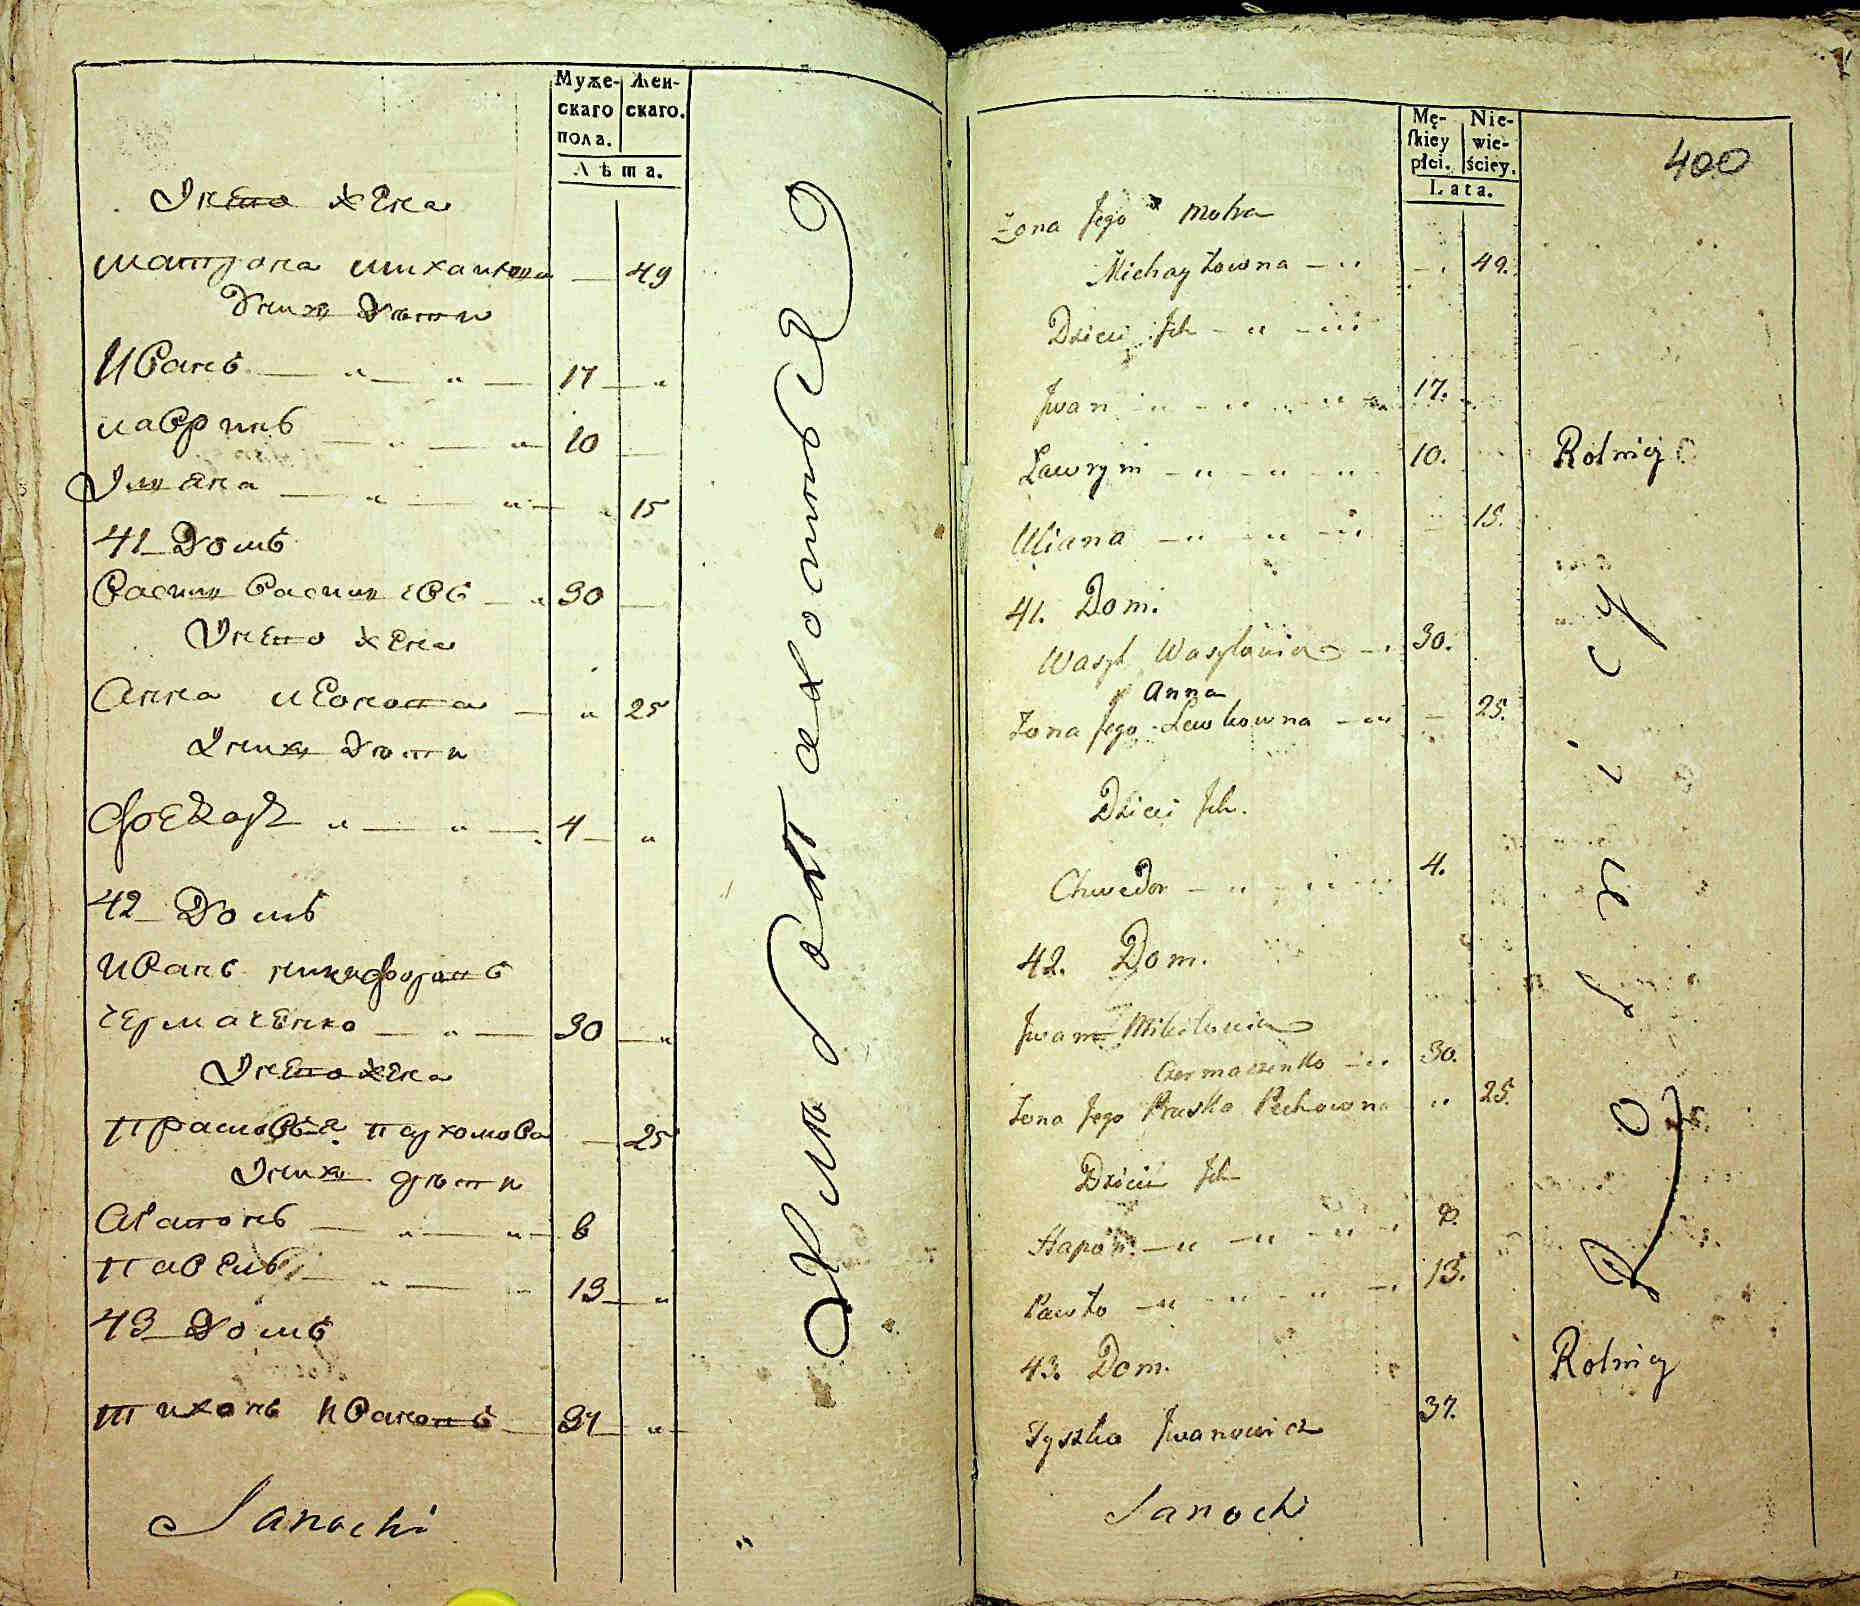 Муже-
скаго
пола.
Жен-
скаго.
Лѣта.
Унего жена
матрона михаилова — 49
Унихъ дѣти
Иванъ — „ — „ — 17 — „
лавринъ — „ — „ 10 —
Улияна — „ — „ — „ 15
41 Домъ
Василь Василиевъ — „ 30 —
Унего жена
Анна левкова — „ 25
Унихъ дѣти
Феодоръ „ — „ — 4 — „
42 Домъ
Иванъ никифоровъ
чермаченко — „ — 30 — „
Унего жена
Прасковья пахомова — 25
Унихъ дѣти
Агапонъ — „ — „ — 8
Павелъ — „ — „ 13 — „
43 Домъ
тихонъ Ивановъ — 37 — „
Sanochi
Хлѣбопашествуюн
400
Mę-
skiey
płci.
Nie-
wie-
ściey.
Lata.
Żona Jego Motra
Michayłowna — „ — „ 49.
Dzieci Jch — „ — „
Jwan — „ — „ — „ 17.
Ławryn — „ — „ — „ 10.
Rolnicy
Uliana — „ — „ — „ 15.
41. Dom.
Wasyl Wasylowicz — „ 30.
Anna
Żona Jego Lewkowna — „ — 25.
Dzieci Jch.
Chwedor — „ — „ — „ 4.
42. Dom.
Jwan Mikitowicz
Czermaczenko — „ 30.
Żona Jego Pruska Pechowna „ 25.
Dzieci Jch
Hapon. — „ — „ — „ 8.
Pawło — „ — „ — „ — „ 13.
43. Dom.
Rolnicy
Tyszko Jwanowicz 37.
Sanochi
Rolnicy